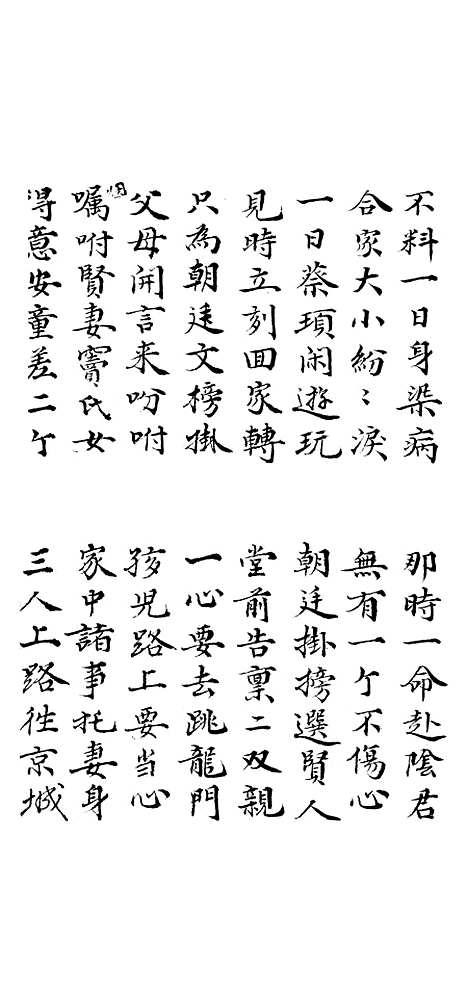 不料一日身染病
那時一命赴陰君
合家大小紛〻淚
無有一个不傷心
一日蔡頊闲遊玩
朝廷掛搒選賢人
見時立刻回家轉
堂前告禀二双親
只為朝廷文榜掛
一心要去跳龍門
父母開言来吩咐
孩児路上要当心
囑咐賢妻竇氏女
家中諸事托妻身
得意安童差二个
三人上路徃京城